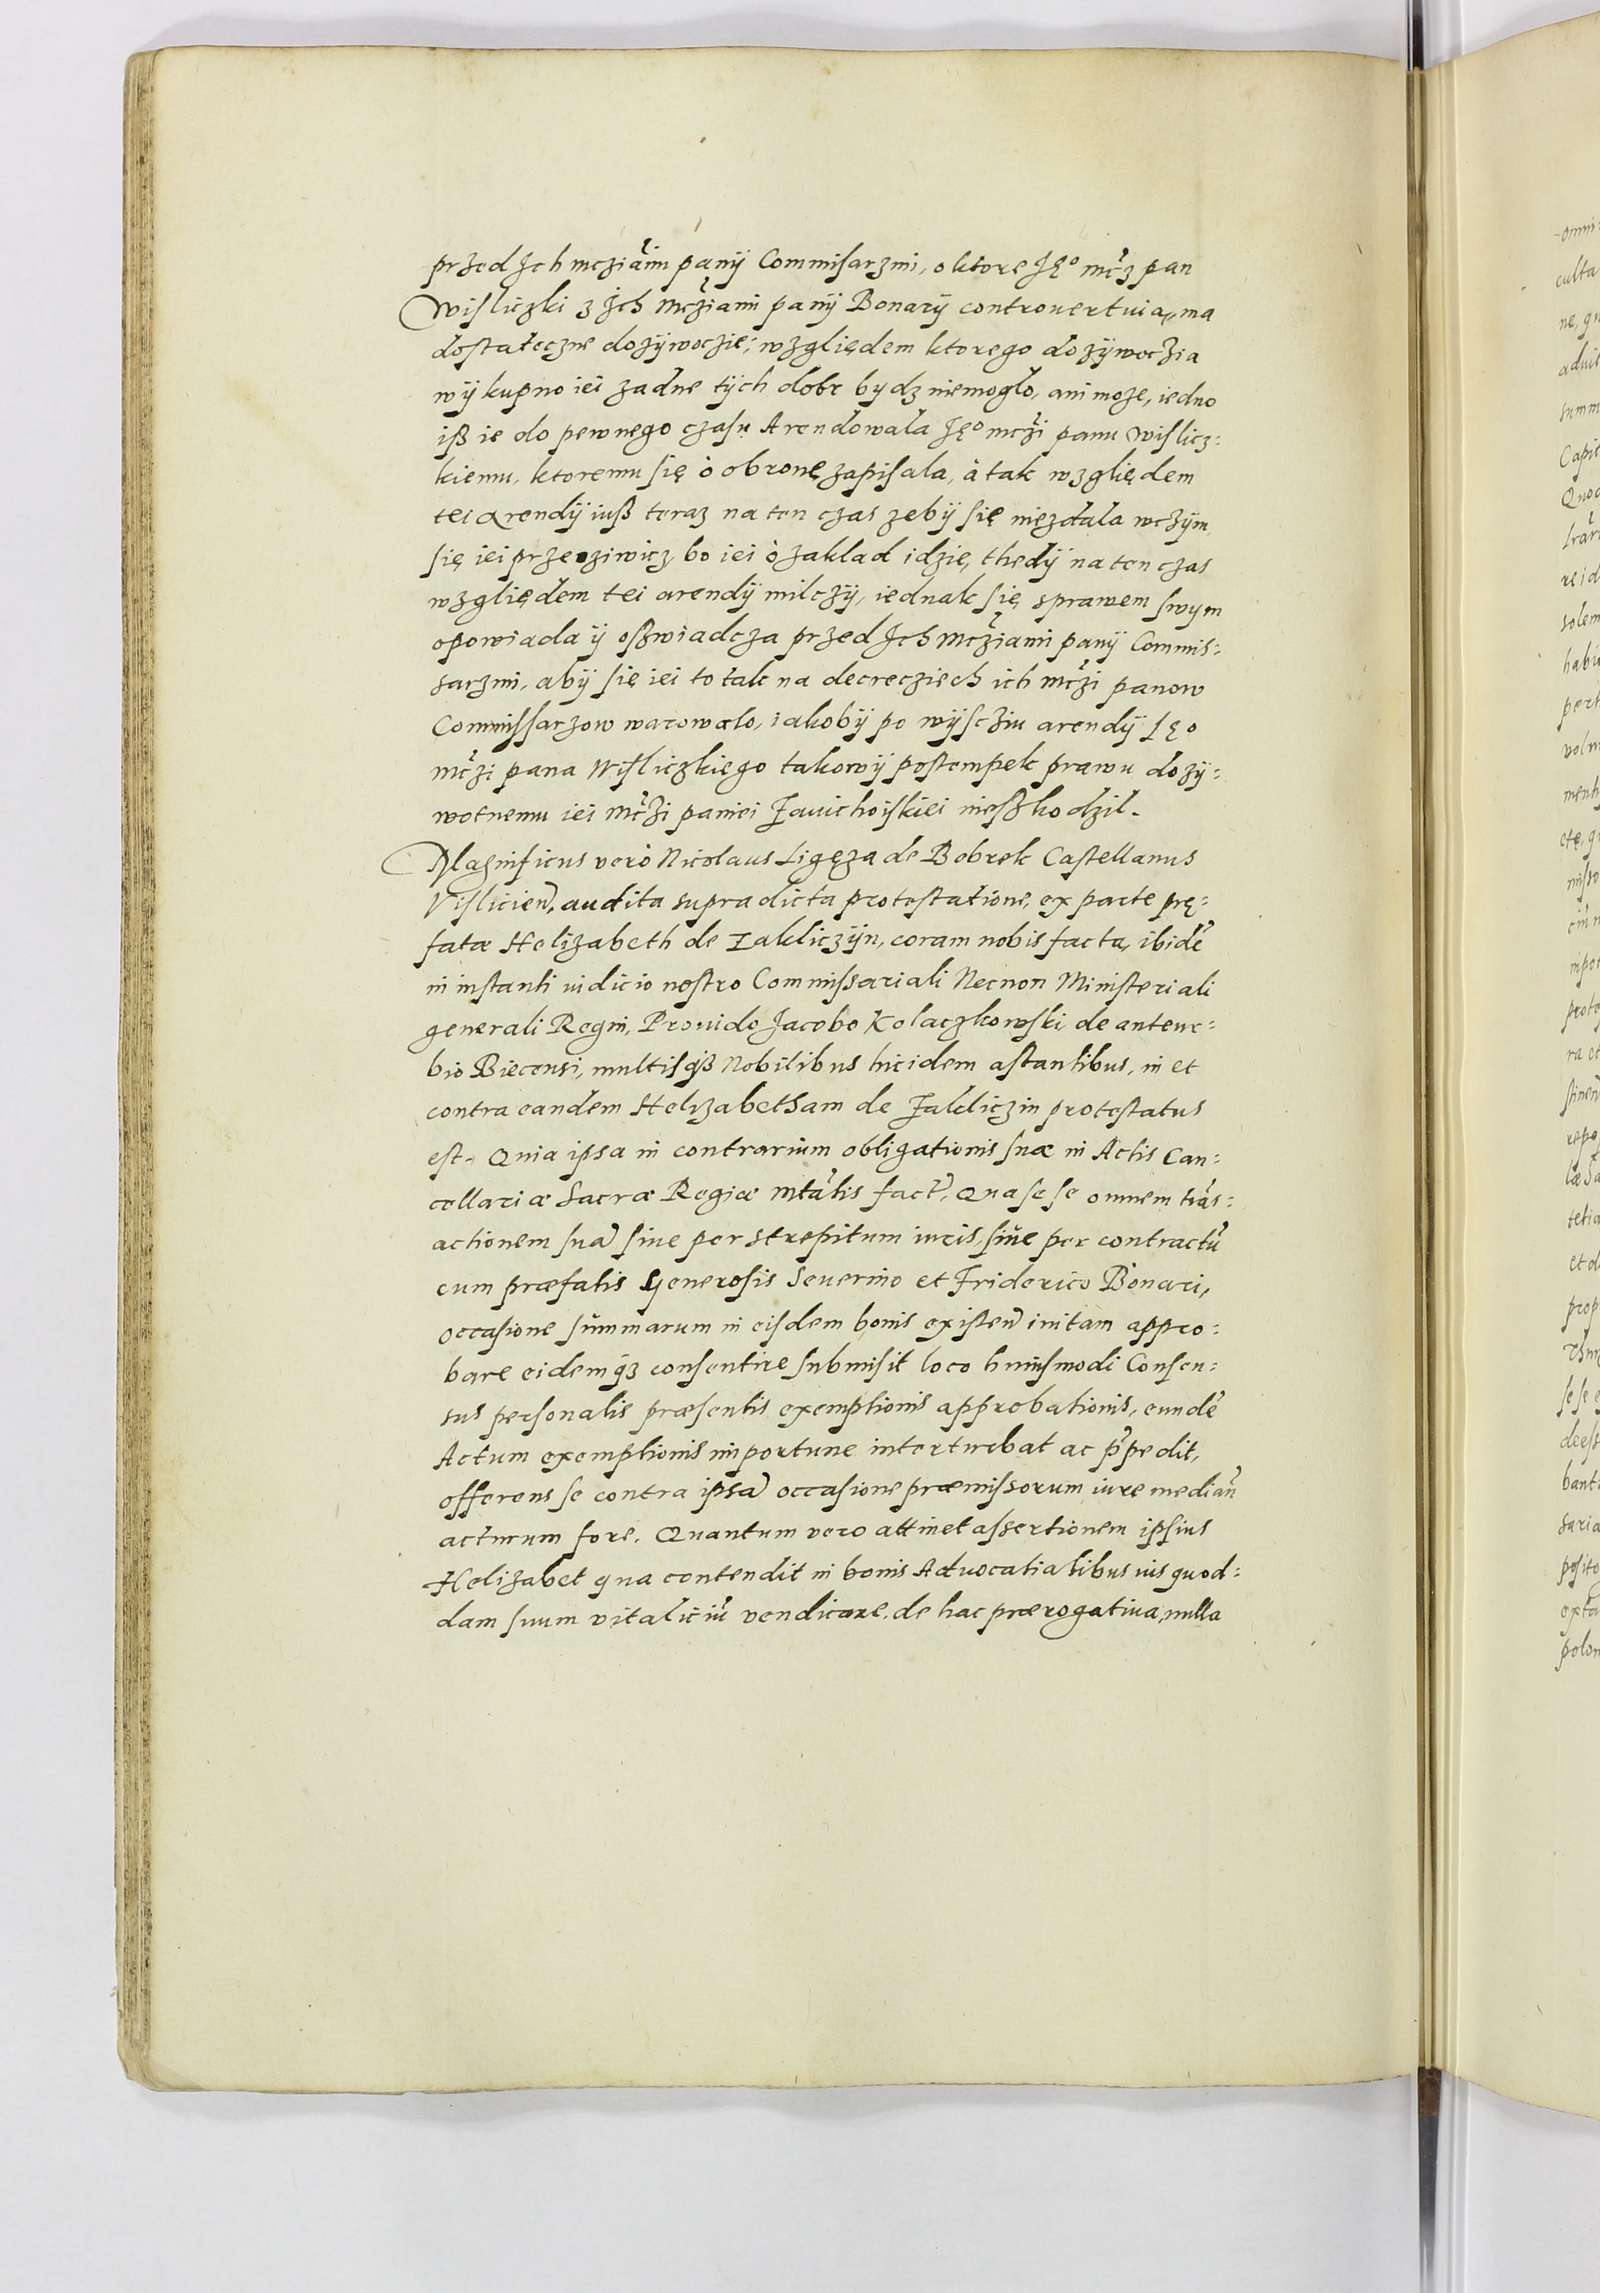 przed Jch mcziami panÿ Commisarzmi, o ktore Jęº mčz pan
Wisliczki z Jch mcziami panÿ Bonarÿ controuertuia, ma
dostateczne dożÿwoczie, wzgliędem ktorego dożÿwoczia
wÿkupno iei żadne tÿch dobr bydz niemogło, ani może, iedno
iß ie do pewnego czasu Arendowala Jęº mczi panu Wislicz:
kiemu, ktoremu się ò obronę zapisala, à tak wzgliędem
tei Arendÿ iuß teraz na ten czas żebÿ się niezdała wczÿm
się iei przeoziwicz bo iei ò zaklad idzie, thedÿ na ten czas
wzgliędem tei arendÿ milczÿ, iednak się sprawem swym
opowiada ÿ oßwiadcza przed Jch mcziami panÿ Commis:
sarzmi, abÿ się iei to tak na decrecziech ich mczi panow
Commissarzow warowało, iakobÿ po wÿscziu arendÿ Jęo
mczi pana Wisliczkiego takowÿ postempek prawu dożÿ:
wotnemu iei mczi paniei Zawichoiskiei nieszkodzil.
Magnificus verò Nicolaus Ligęza de Bobrek Castellanus
Vislicien̄, audita supradicta protestatione, ex parte prę:
fatæ Helizabeth de Zakliczÿn, coram nobis facta, ibidē
in instanti iudicio nostro Commissariali Necnon Ministeriali
generali Regni, Prouido Jacobo Kolaczkowski de anteur:
bio Biecensi, multisq́ꝫ Nobilibus hicidem astantibus, in et
contra eandem Helizabetham de Zakliczin protestatus
est. Quia ipsa in contrarium obligationis suæ in Actis Can:
cellariæ Sacræ Regiæ Mtātis fact̄, Qua sese omnem trās:
actionem suā siue per strepitum iuris, siue per contractū
cum præfatis Generosis Seuerino et Friderico Bonari,
occasione summarum in eisdem bonis existen̄ initam appro:
bare eidemq́ꝫ consentire submisit loco huiusmodi Consen:
sus personalis præsentis exemptionis approbationis, eundē
Actum exemptionis importune interturbat ac p̄pedit,
offerens se contra ipsā occasione præmissorum iure median̄
acturum fore. Quantum vero attinet assertionem ipsius
Helizabet qua contendit in bonis Aduocatialibus ius quod:
dam suum vitaliciū vendicare, de hac prærogatiua, nulla